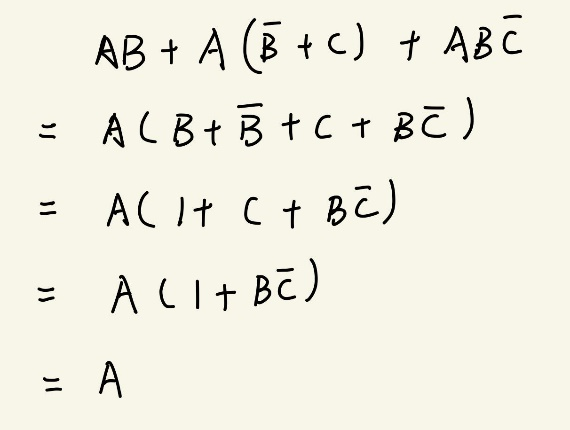 AB + A(B̅ + C) + ABC̅
= A(B + B̅ + C + BC̅)
= A(1 + C + BC̅)
= A(1 + BC̅)
= A